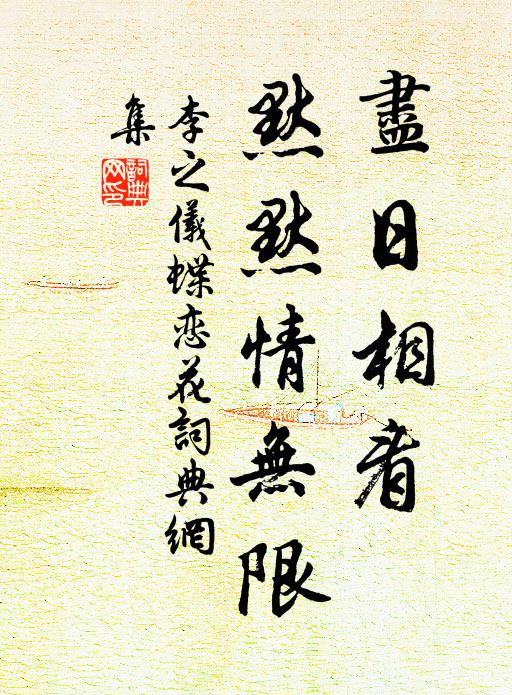 盡日相看
默默情無限
李之儀蝶恋花詞典網
集
詞典
网印